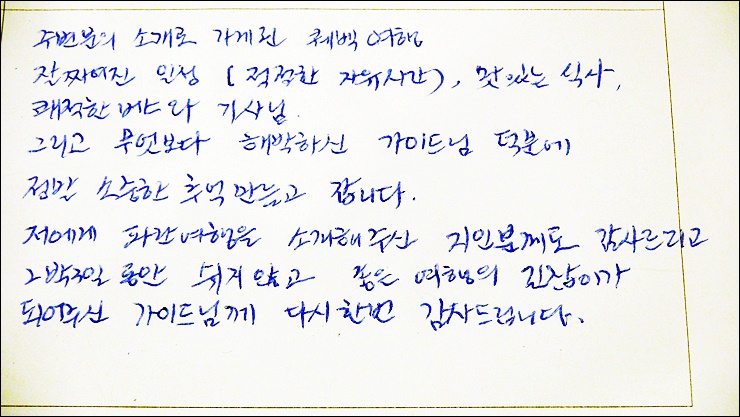 주변분의 소개로 가게된 퀘벡 여행
잘 짜여진 일정 (적적한 자유시간), 맛있는 식사,
쾌적한 버스와 기사님.
그리고 무엇보다 해박하신 가이드님 덕분에
정말 소중한 추억 만들고 갑니다.
저에게 파란여행을 소개해 주신 지인분께도 감사드리고
2박3일 동안 쉬지 않고 좋은 여행의 길잡이가
되어주신 가이드님께 다시 한번 감사드립니다.